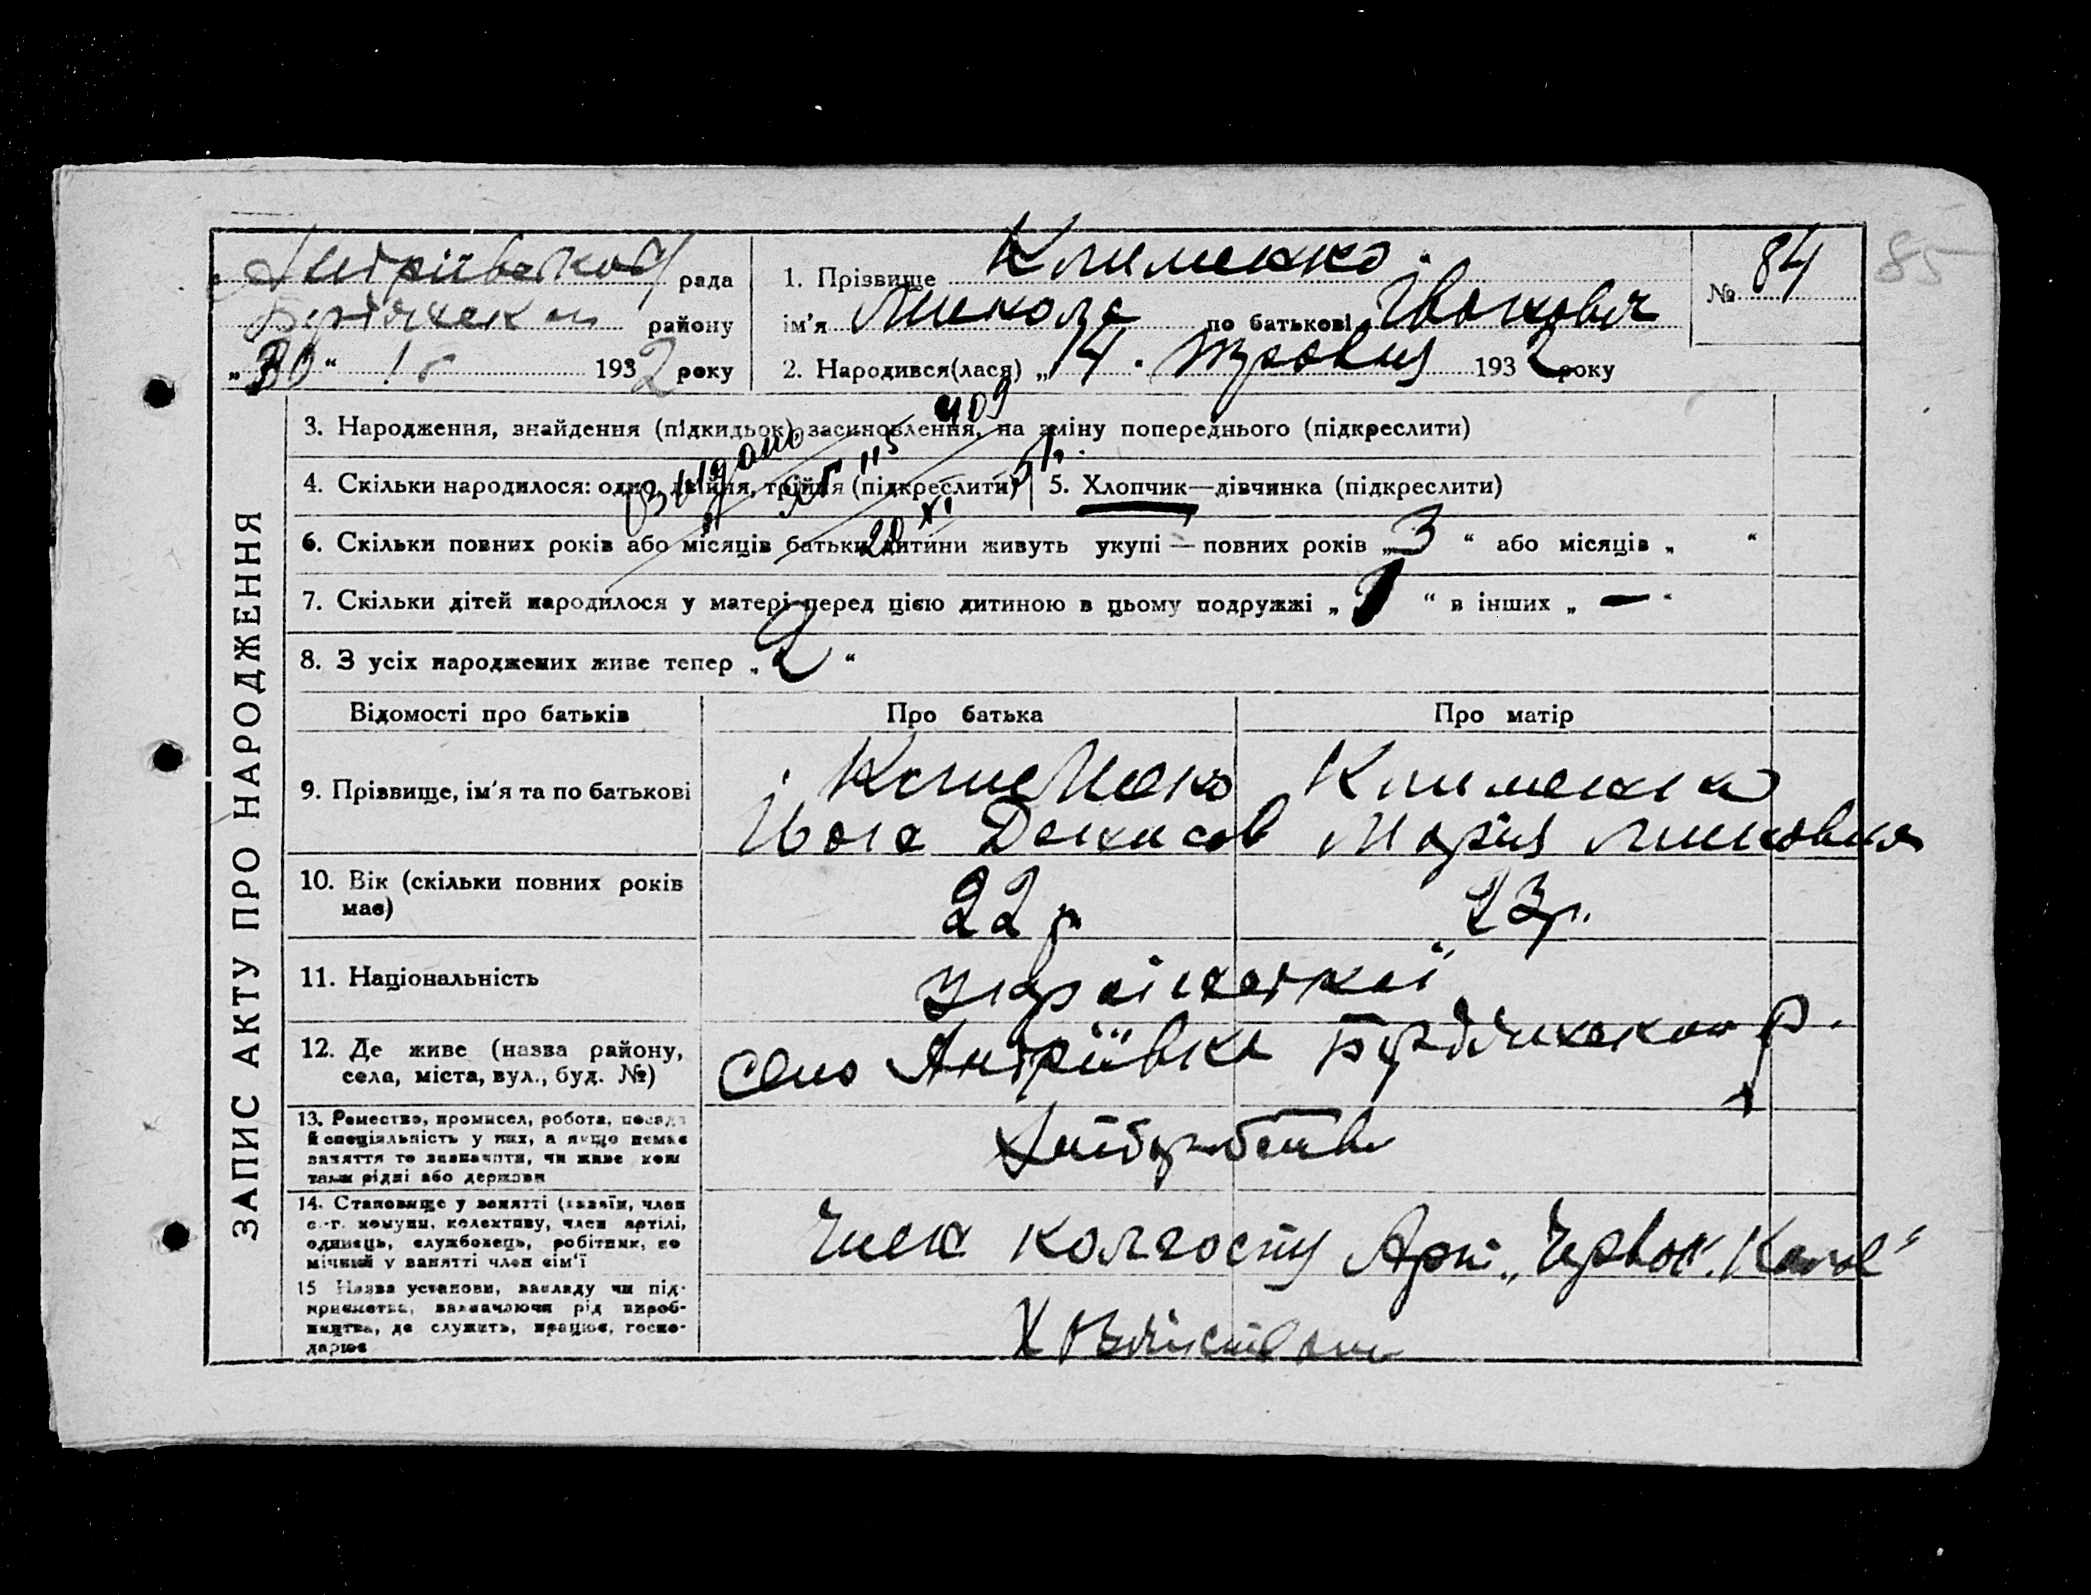 Андріївської рада
Бердянськ району
„30“ 193 2 року
1. Прізвище Клименко
ім'я Микола по батькові Іванович
2. Народився(лася) „14. травня 193 2 року
№ 84
85
ЗАПИС АКТУ ПРО НАРОДЖЕННЯ
3. Народження, знайдення (підкидьок) засиновлення, на зміну попереднього (підкреслити)
4. Скільки народилося: одно, двійня, трійня (підкреслити)
5. Хлопчик—дівчинка (підкреслити)
Видано
6. Скільки повних років або місяців батьки дитини живуть укупі — повних років „3“ або місяців „ “
7. Скільки дітей народилося у матері перед цією дитиною в цьому подружжі „1“ в інших „—“
8. З усіх народжених живе тепер „2“
Відомості про батьків
Про батька
Про матір
9. Прізвище, ім'я та по батькові
Клименко
Іван Денисов
Клименко
Марія
10. Вік (скільки повних років має)
22 р
23р.
11. Національність
українські
12. Де живе (назва району, села, міста, вул., буд. №)
село Андріївка Бердянського р.
13. Ремество, промисел, робота, посада
й спеціяльність у них, а якщо немає
заняття то зазначити, чи живе кош
тами рідні або держави
Хліборобство
14. Становище у занятті (хазяїн, член
с.-г. комуни, колективу, член артілі,
одинець, службовець, робітник, по
мічний у занятті член сім'ї
Член колгоспу Арт. „Червон.
15 Назва установи, закладу чи під-
приємства, зазначаючи рід вироб-
ництва, де служить, працює, госпо-
дарює